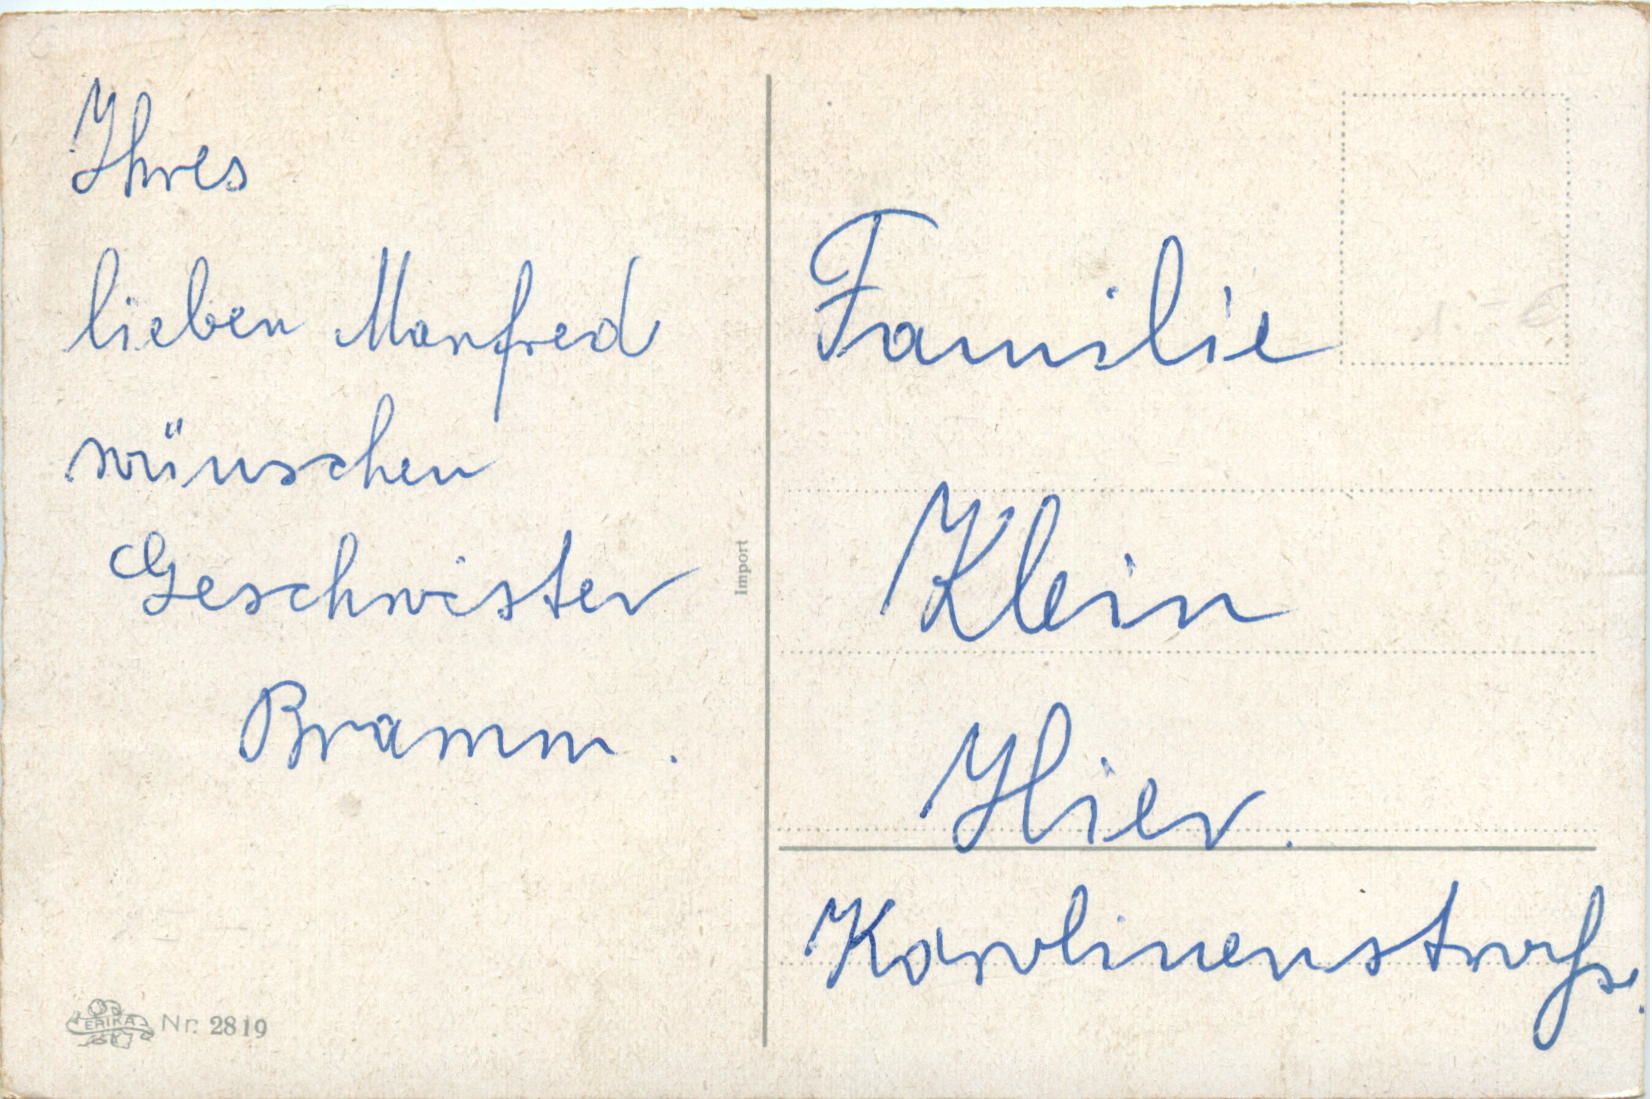 Ihres
lieben Manfred
wünschen
Geschwister
Bramm.
Import
ERIKA Nr. 2819
1.- €
Familie
Klein
Hier.
Karolinenstraße.